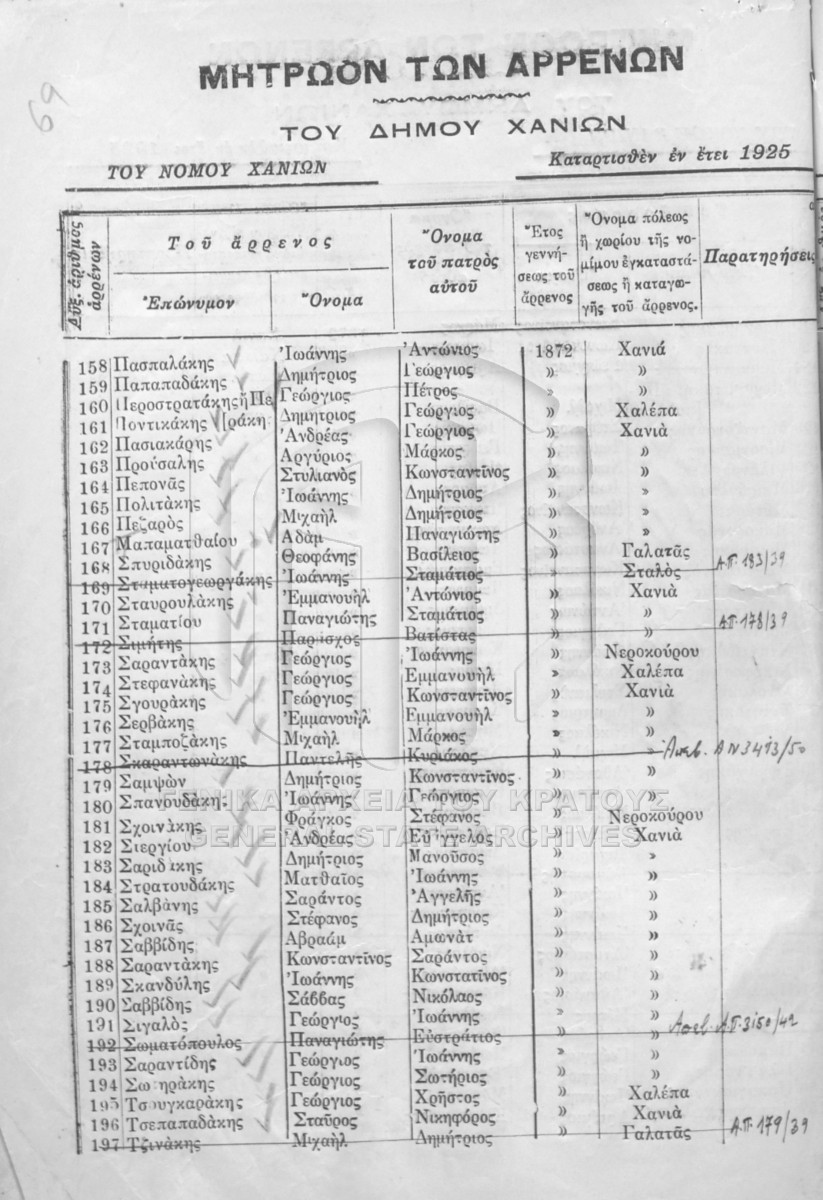 69
ΜΗΤΡΩΟΝ ΤΩΝ ΑΡΡΕΝΩΝ
ΤΟΥ ΔΗΜΟΥ ΧΑΝΙΩΝ
ΤΟΥ ΝΟΜΟΥ ΧΑΝΙΩΝ
Καταρτισθὲν ἐν ἔτει 1925
Αὔξ. ἀριθμὸς ἀρρένων
Τοῦ ἄρρενος
Ἐπώνυμον
Ὄνομα
Ὄνομα τοῦ πατρὸς αὐτοῦ
Ἔτος γεννήσεως τοῦ ἄρρενος
Ὄνομα πόλεως ἢ χωρίου τῆς νομίμου ἐγκαταστάσεως ἢ καταγωγῆς τοῦ ἄρρενος.
Παρατηρήσεις
158 Πασπαλάκης Ἰωάννης Ἀντώνιος 1872 Χανιά
159 Παπαπαδάκης Δημήτριος Γεώργιος » »
160 Περοστρατάκης ἢ Πε Γεώργιος Πέτρος » »
161 Ποντικάκης Ϊράκη Δημητριος Γεώργιος » Χαλέπα
162 Πασιακάρης Ἀνδρέας Γεώργιος » Χανιὰ
163 Προύσαλης Αργύριος Μάρκος » »
164 Πεπονᾶς Στυλιανὸς Κωνσταντῖνος » »
165 Πολιτάκης Ἰωάννης Δημήτριος » »
166 Πεζαρὸς Μιχαὴλ Δημήτριος » »
167 Μαπαματθαίου Αδὰμ Παναγιώτης » »
168 Σπυριδάκης Θεοφάνης Βασίλειος » Γαλατᾶς
169 Σταματογεωργάκης Ἰωάννης Σταμάτιος » Σταλὸς Α.Π. 183/39
170 Σταυρουλάκης Ἐμμανουὴλ Ἀντώνιος » Χανιὰ
171 Σταματίου Παναγιώτης Σταμάτιος » »
172 Σιμήτης Παρίσχος Βατίστας » » Α.Π. 178/39
173 Σαραντάκης Γεώργιος Ἰωάννης » Νεροκούρου
174 Στεφανάκης Γεώργιος Ἐμμανουὴλ » Χαλέπα
175 Σγουράκης Γεώργιος Κωνσταντῖνος » Χανιὰ
176 Σερβάκης Ἐμμανουὴλ Ἐμμανουὴλ » »
177 Σταμποζάκης Μιχαὴλ Μάρκος » »
178 Σκαραντωνάκης Παντελῆς Κυριάκος » » Απεβ. Α Ν 3493/50
179 Σαμψὼν Δημήτριος Κωνσταντῖνος » »
180 Σπανουδάκη. Ἰωάννης Γεώργιος » »
181 Σχοινάκης Φράγκος Στέφανος » Νεροκούρου
182 Σιεργίου Ἀνδρέας Εὐάγγελος » Χανιὰ
183 Σαριδάκης Δημήτριος Μανοῦσος » »
184 Στρατουδάκης Ματθαῖος Ἰωάννης » »
185 Σαλβάνης Σαράντος Ἀγγελῆς » »
186 Σχοινᾶς Στέφανος Δημήτριος » »
187 Σαββίδης Αβραὰμ Αμωνὰτ » »
188 Σαραντάκης Κωνσταντῖνος Σαράντος » »
189 Σκανδύλης Ἰωάννης Κωνστατῖνος » »
190 Σαββίδης Σάββας Νικόλαος » »
191 Σιγαλὸς Γεώργιος Ἰωάννης » »
192 Σωματόπουλος Παναγιώτης Εὐστράτιος » » Απεβ. Α.Π. 3150/42
193 Σαραντίδης Γεώργιος Ἰωάννης » »
194 Σωτηράκης Γεώργιος Σωτήριος » »
195 Τσουγκαράκης Γεώργιος Χρῆστος » Χαλέπα
196 Τσεπαπαδάκης Σταῦρος Νικηφόρος » Χανιὰ
197 Τζινάκης Μιχαὴλ Δημήτριος » Γαλατᾶς Α.Π. 179/39
ΓΕΝΙΚΑ ΑΡΧΕΙΑ ΤΟΥ ΚΡΑΤΟΥΣ
GENERAL STATE ARCHIVES